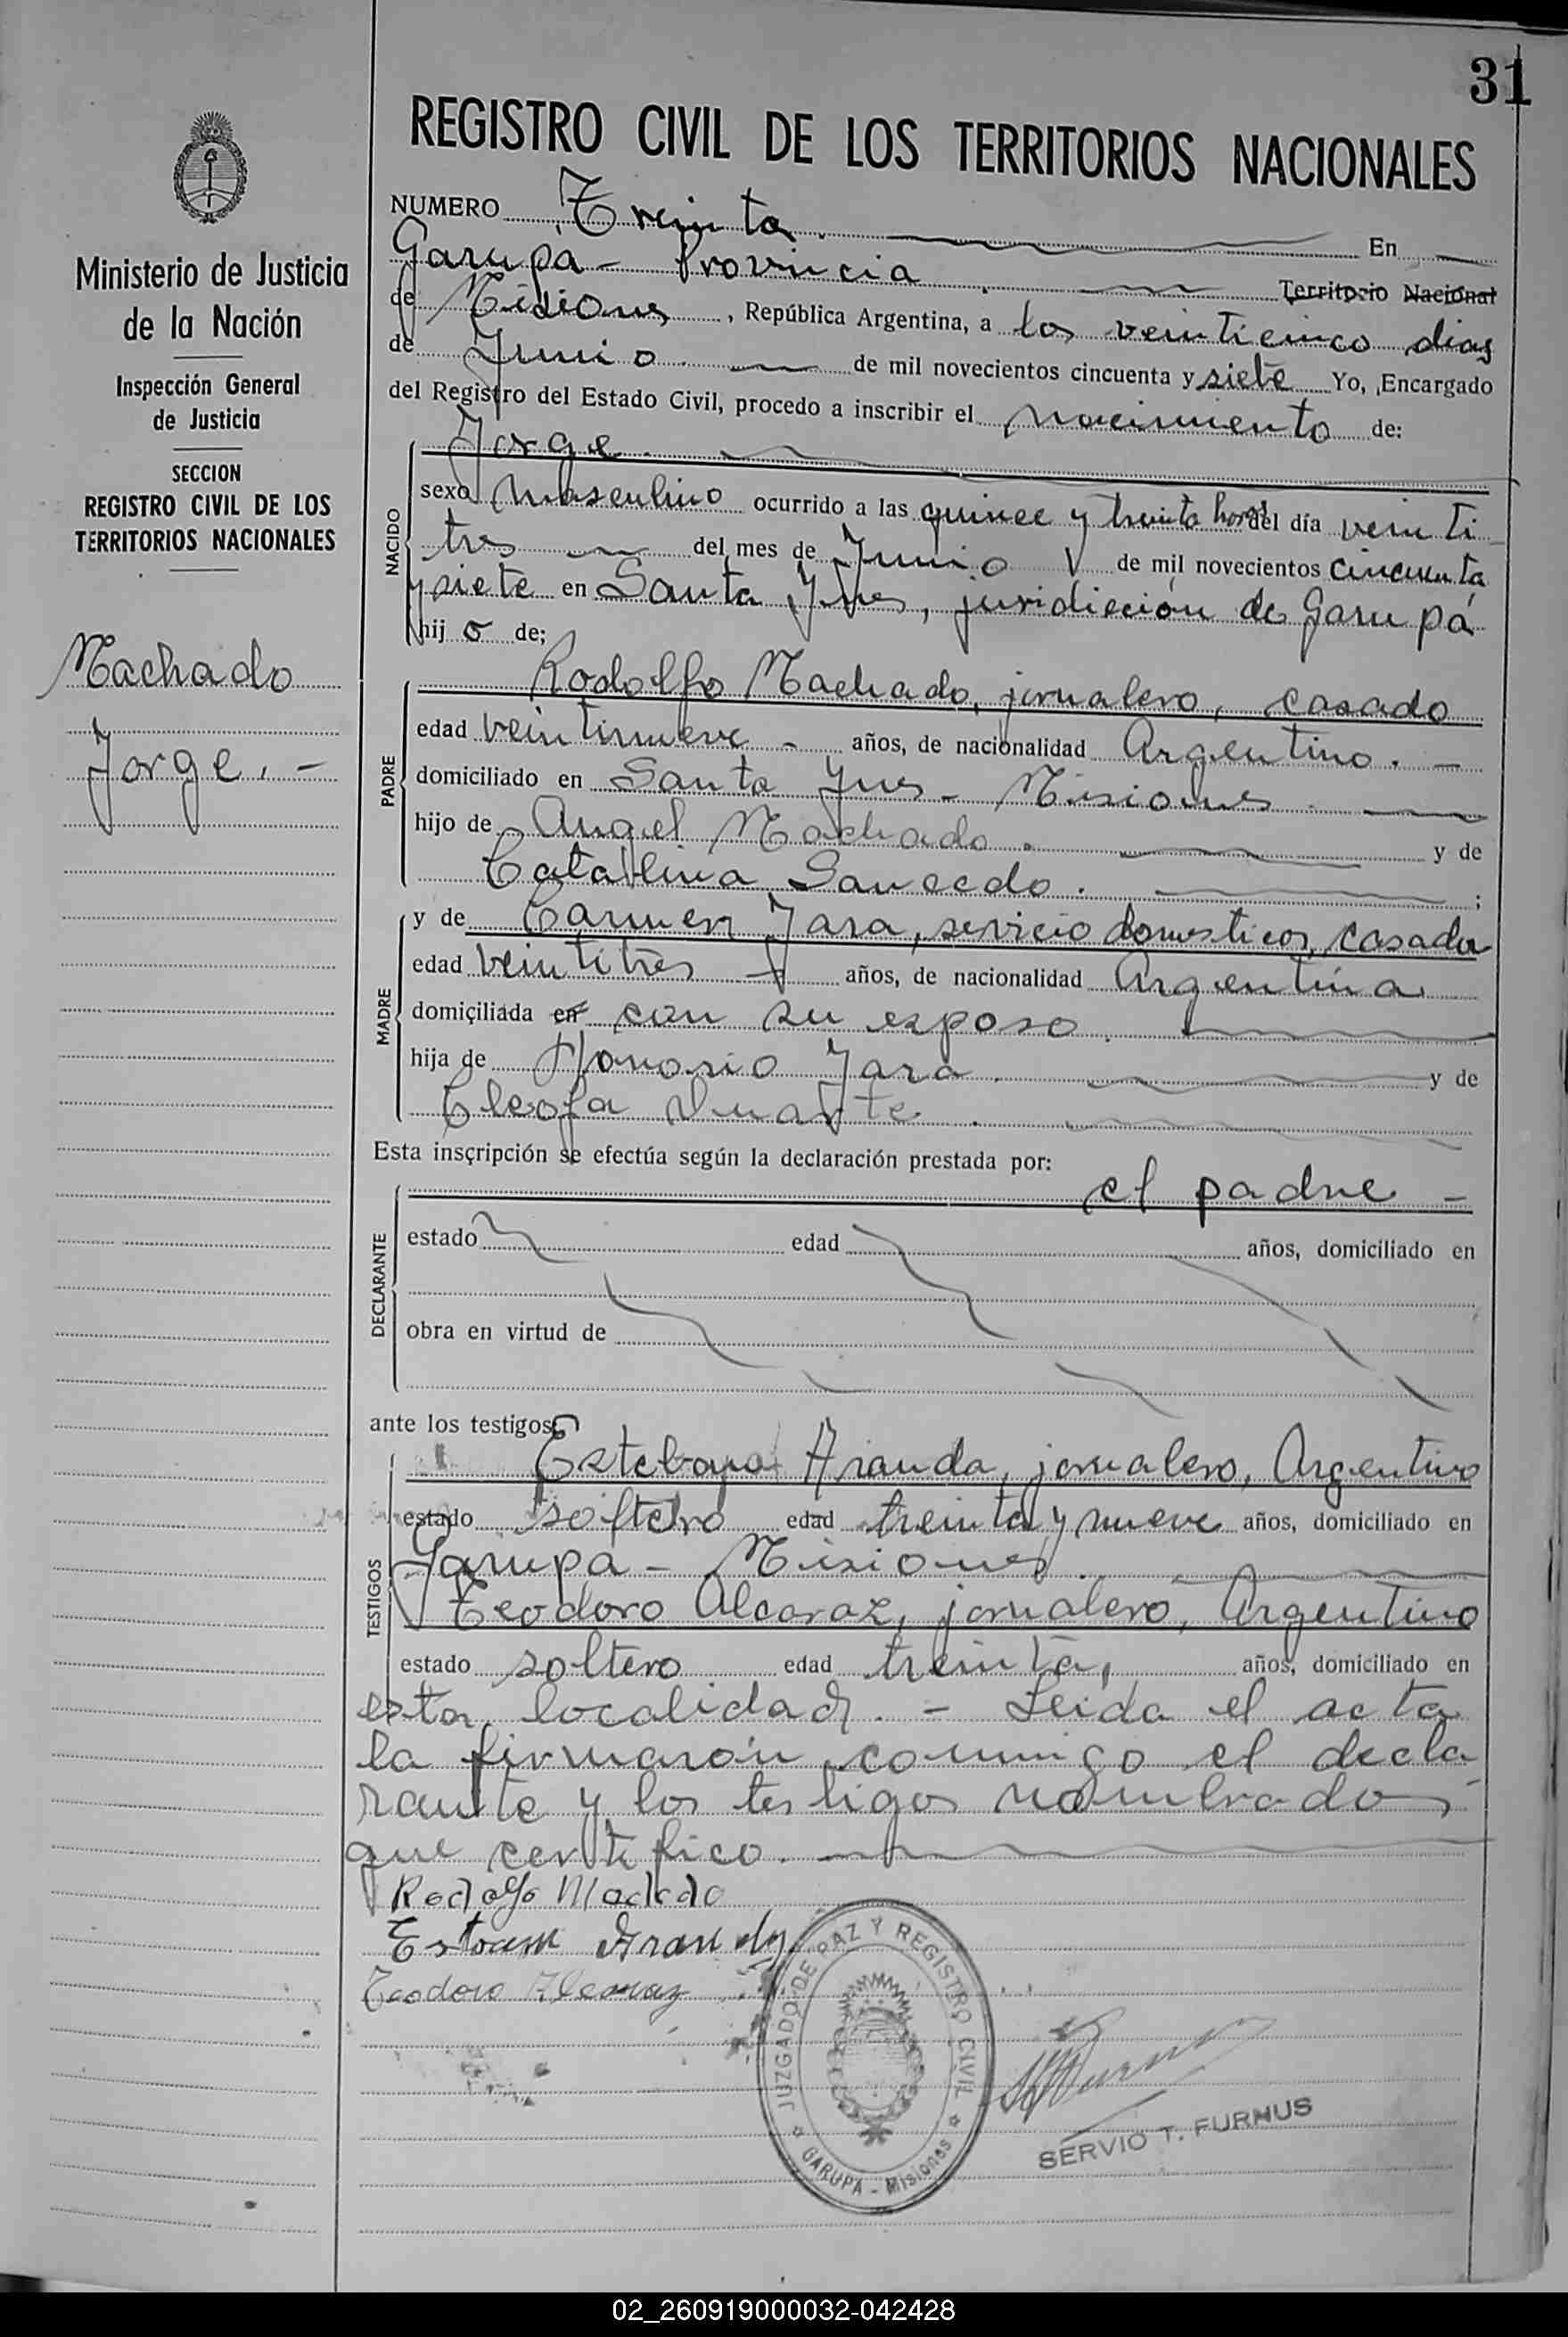 31
REGISTRO CIVIL DE LOS TERRITORIOS NACIONALES
Ministerio de Justicia
de la Nación
Inspección General
de Justicia
SECCION
REGISTRO CIVIL DE LOS
TERRITORIOS NACIONALES
Machado
Jorge. -
NUMERO Treinta. En
Garupa - Provincia. Territorio Nacional
de Misiones, República Argentina, a los veinticinco dias
de Junio. de mil novecientos cincuenta y siete Yo, Encargado
del Registro del Estado Civil, procedo a inscribir el nacimiento de:
Jorge.
NACIDO
sexo masculino ocurrido a las quince y treinta horas del día veinti
tres del mes de Junio de mil novecientos cincuenta
y siete en Santa Ynes, jurisdicción de Garupá
hijo de;
PADRE
Rodolfo Machado, jornalero, casado
edad veintinueve - años, de nacionalidad Argentino. -
domiciliado en Santa Ynes - Misiones.
hijo de Angel Machado. y de
Catalina Saucedo. ;
MADRE
y de Carmen Jara, servicio domesticos, casada
edad veintitres años, de nacionalidad Argentina
domiciliada en con su esposo.
hija de Honorio Jara. y de
Cleofa Duarte.
Esta inscripción se efectúa según la declaración prestada por:
el padre -
DECLARANTE
estado edad años, domiciliado en
obra en virtud de
ante los testigos
TESTIGOS
Esteban Aranda, jornalero, Argentino
estado soltero edad treinta y nueve años, domiciliado en
Garupa - Misiones.
Teodoro Alcaraz, jornalero, Argentino
estado soltero edad treinta, años, domiciliado en
esta localidad. - Leida el acta
la firmaron conmigo el decla
rante y los testigos nombrados
que certifico.
Rodolfo Machado
Aranda
Teodoro Alcaraz
JUZGADO DE PAZ Y REGISTRO CIVIL
GARUPA - Misiones
SERVIO T. FURHUS
02_260919000032-042428